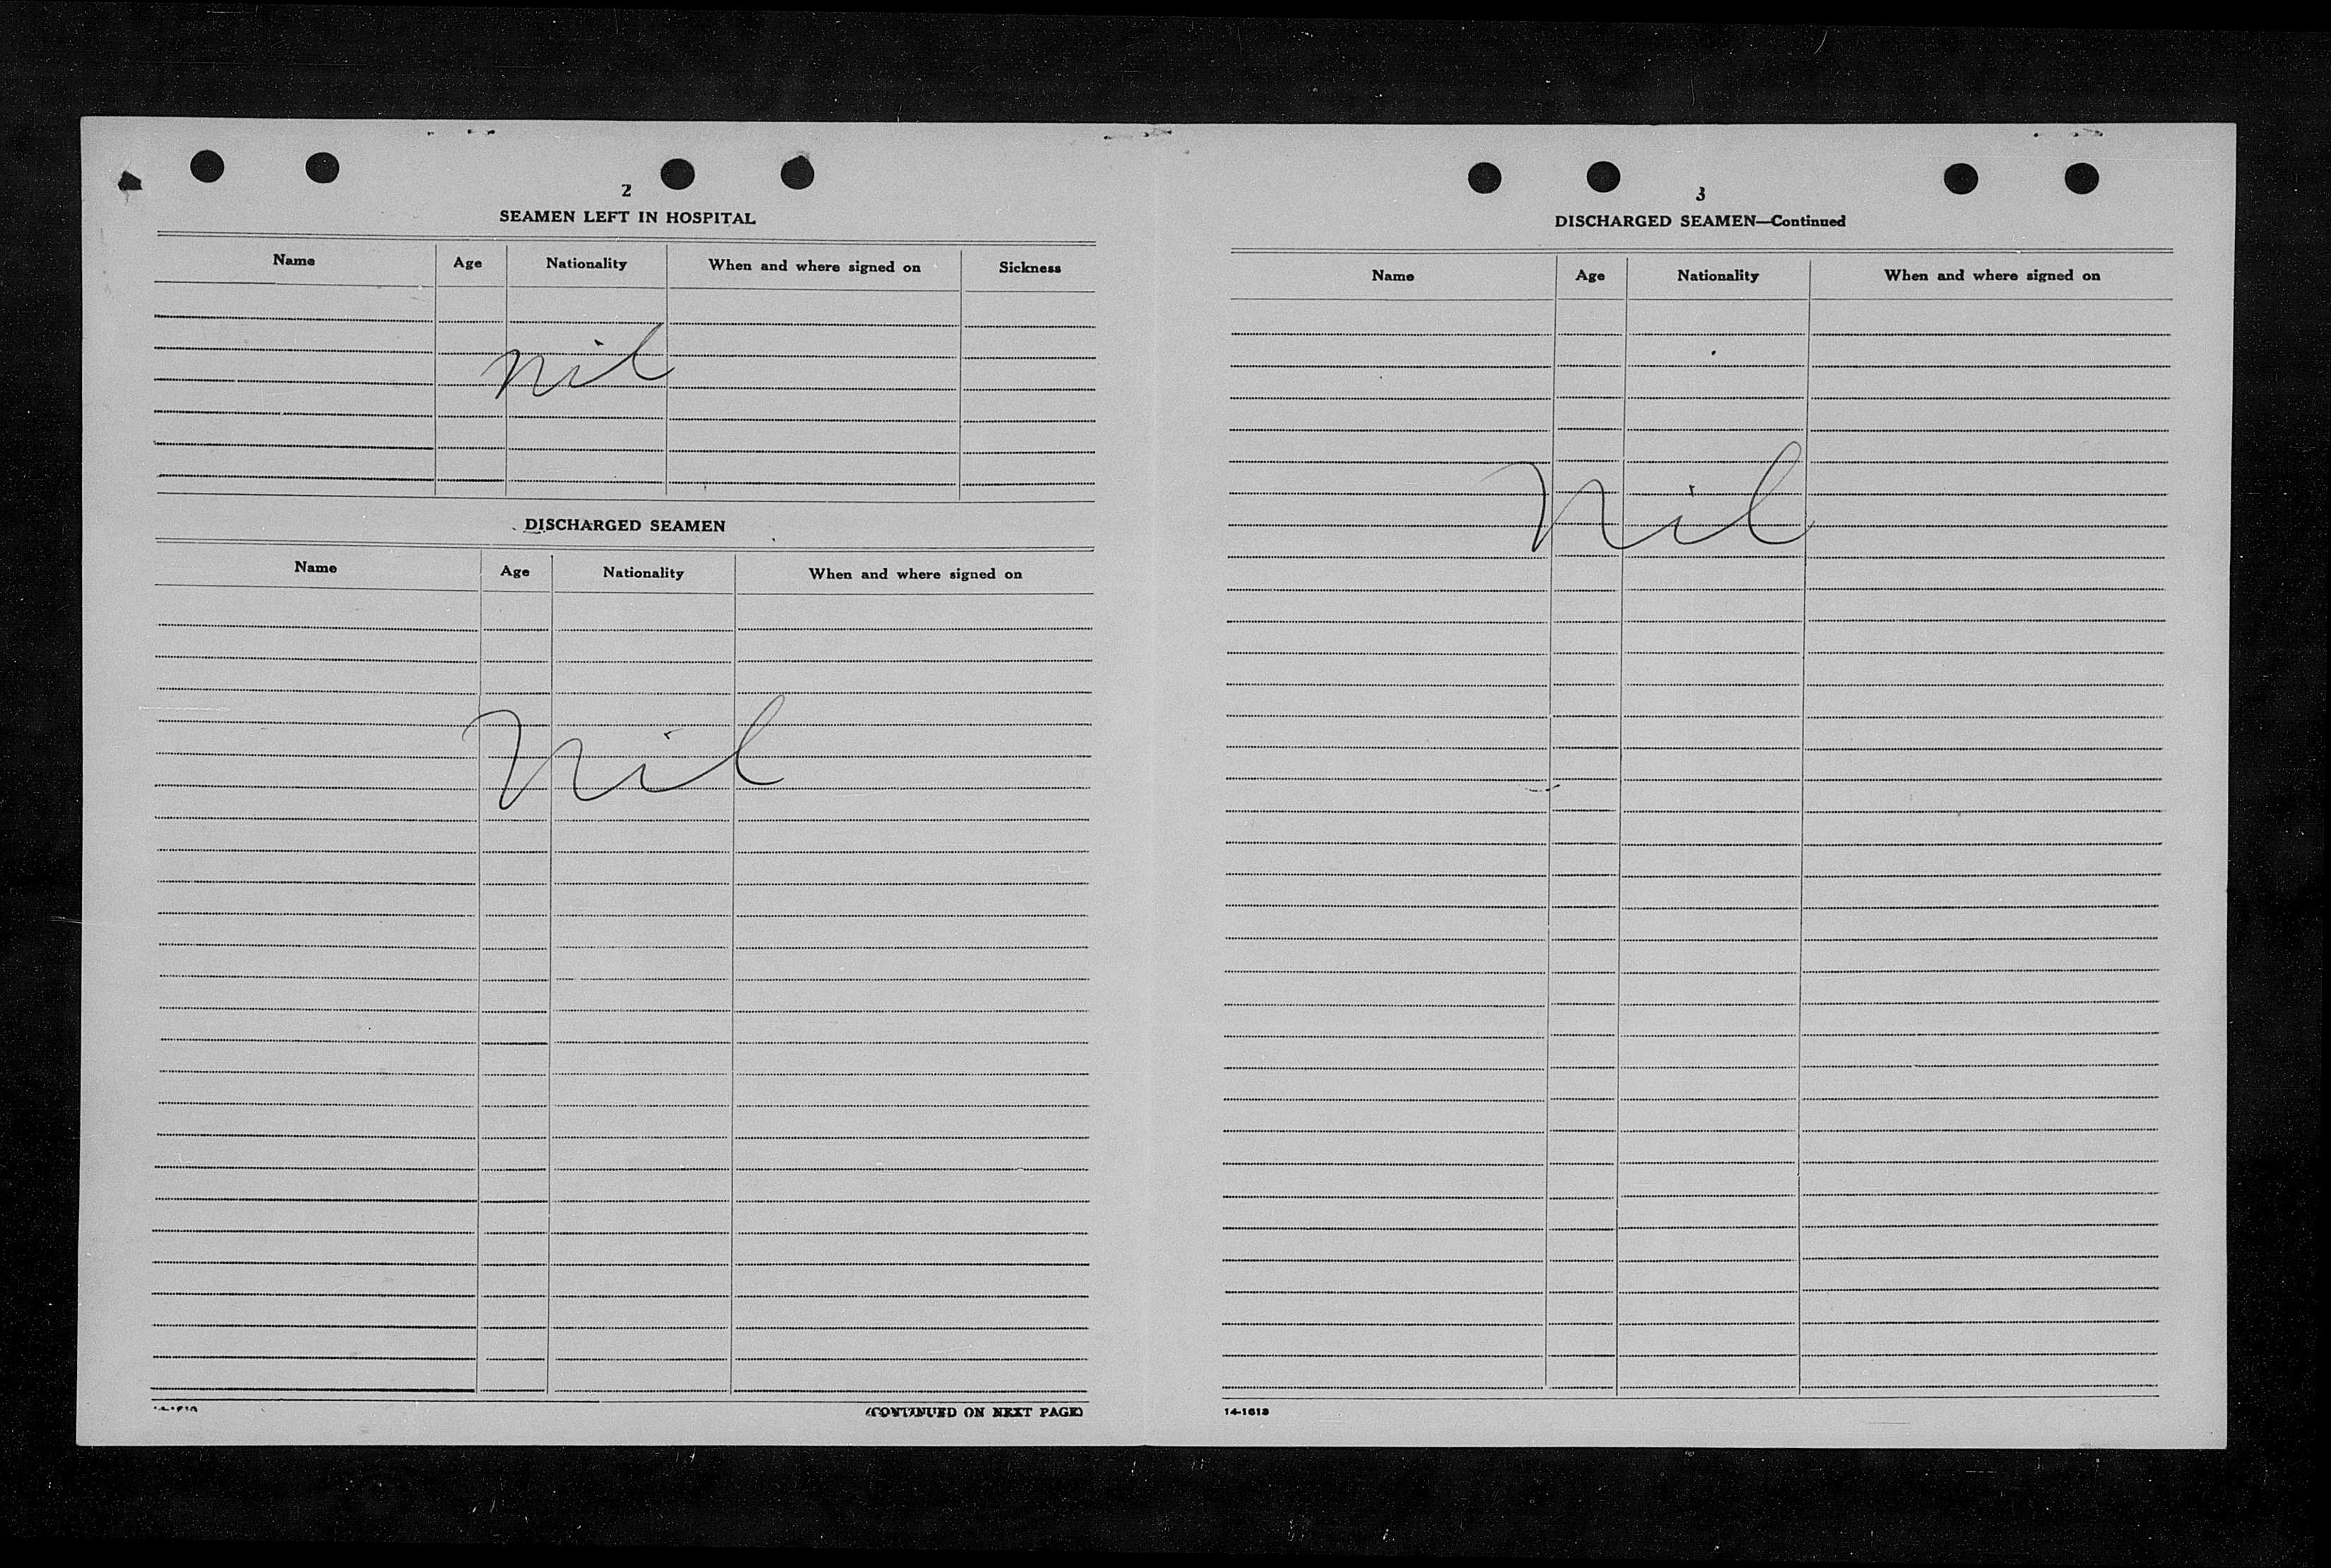 2
SEAMEN LEFT IN HOSPITAL
Name Age Nationality When and where signed on Sickness
nil
DISCHARGED SEAMEN
Name Age Nationality When and where signed on
Nil
(CONTINUED ON NEXT PAGE)
3
DISCHARGED SEAMEN—Continued
Name Age Nationality When and where signed on
Nil
14-1613